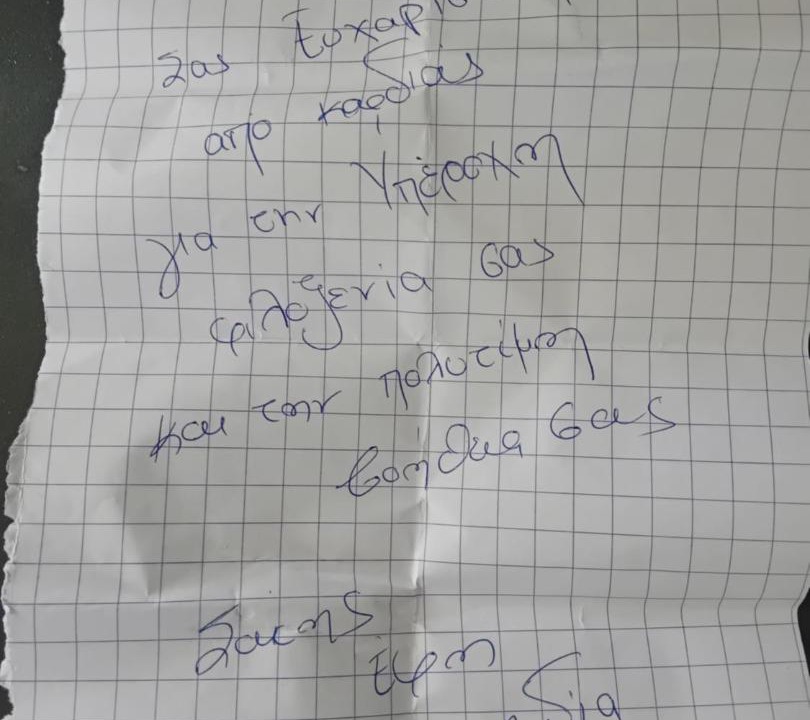 Σας
από καρδιάς
για την Υπέροχη
φιλοξενία σας
και την πολυτίμη
βοήθεια σας
Σακης
Έφη